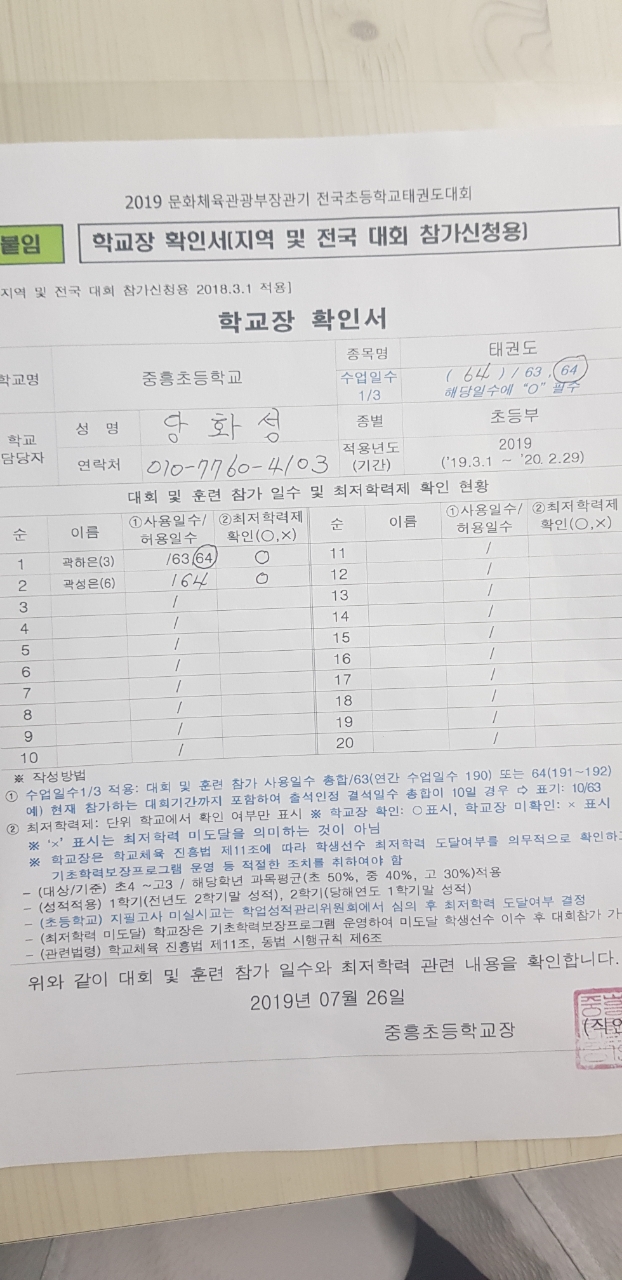 2019 문화체육관광부장관기 전국초등학교태권도대회
붙임 학교장 확인서(지역 및 전국 대회 참가신청용)
지역 및 전국 대회 참가신청용 2018.3.1 적용]
학교장 확인서
학교명 중흥초등학교 종목명 태권도
수업일수 1/3 ( 64 ) / 63 , 64
해당일수에 "O" 필수
학교 담당자 성 명 양화성 종별 초등부
연락처 010-7760-4103 적용년도 (기간) 2019
('19.3.1 ~ '20.2.29)
대회 및 훈련 참가 일수 및 최저학력제 확인 현황
순 이름 ①사용일수/허용일수 ②최저학력제 확인(○,×) 순 이름 ①사용일수/허용일수 ②최저학력제 확인(○,×)
1 곽하은(3) /63 64 ○ 11 /
2 곽성은(6) /64 ○ 12 /
3 / 13 /
4 / 14 /
5 / 15 /
6 / 16 /
7 / 17 /
8 / 18 /
9 / 19 /
10 / 20 /
※ 작성방법
① 수업일수1/3 적용: 대회 및 훈련 참가 사용일수 총합/63(연간 수업일수 190) 또는 64(191~192)
예) 현재 참가하는 대회기간까지 포함하여 출석인정 결석일수 총합이 10일 경우 ⇨ 표기: 10/63
② 최저학력제: 단위 학교에서 확인 여부만 표시 ※ 학교장 확인: ○표시, 학교장 미확인: × 표시
※ '×' 표시는 최저학력 미도달을 의미하는 것이 아님
※ 학교장은 학교체육 진흥법 제11조에 따라 학생선수 최저학력 도달여부를 의무적으로 확인하고
기초학력보장프로그램 운영 등 적절한 조치를 취하여야 함
- (대상/기준) 초4 ~고3 / 해당학년 과목평균(초 50%, 중 40%, 고 30%)적용
- (성적적용) 1학기(전년도 2학기말 성적), 2학기(당해연도 1학기말 성적)
- (초등학교) 지필고사 미실시교는 학업성적관리위원회에서 심의 후 최저학력 도달여부 결정
- (최저학력 미도달) 학교장은 기초학력보장프로그램 운영하여 미도달 학생선수 이수 후 대회참가 가
- (관련법령) 학교체육 진흥법 제11조, 동법 시행규칙 제6조
위와 같이 대회 및 훈련 참가 일수와 최저학력 관련 내용을 확인합니다.
2019년 07월 26일
중흥초등학교장 (직인